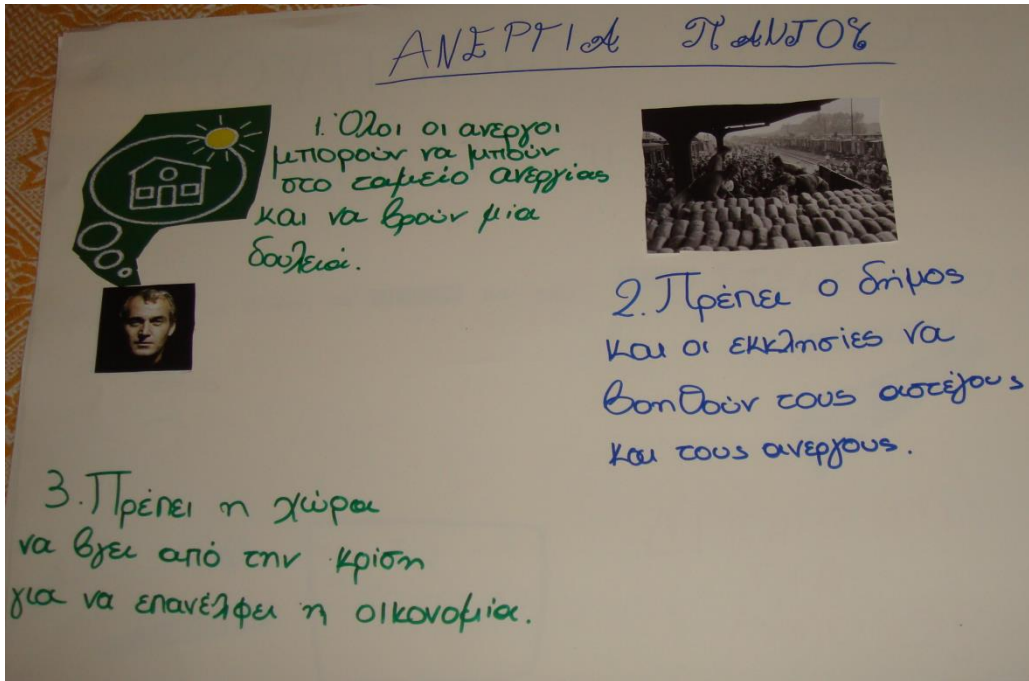 ΑΝΕΡΓΙΑ ΠΑΝΤΟΥ
1. Όλοι οι ανεργοι
μπορούν να μπούν
στο ταμείο ανεργίας
και να βρούν μια
δουλειά.
2. Πρέπει ο δήμος
και οι εκκλησίες να
βοηθούν τους αστέγους
και τους ανεργους.
3. Πρέπει η χώρα
να βγει από την κρίση
για να επανέλφει η οικονομία.